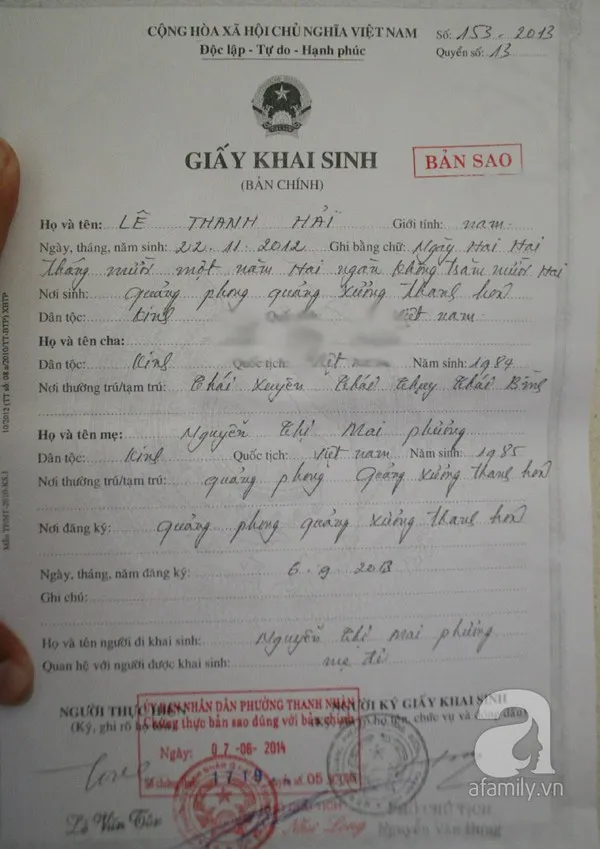 CỘNG HÒA XÃ HỘI CHỦ NGHĨA VIỆT NAM
Độc lập - Tự do - Hạnh phúc
Số: 153 - 2013
Quyển số: 13
GIẤY KHAI SINH
(BẢN CHÍNH)
BẢN SAO
Họ và tên: LÊ THANH HẢI Giới tính: nam
Ngày, tháng, năm sinh: 22.11.2012 Ghi bằng chữ: Ngày Hai Hai
tháng mười một năm Hai ngàn không trăm mười Hai
Nơi sinh: quảng phong quảng xương thanh hoá
Dân tộc: kinh Việt nam
Họ và tên cha:
Dân tộc: kinh Quốc tịch: Việt nam Năm sinh: 1984
Nơi thường trú/tạm trú: thái xuyên thái thụy thái Bình
Họ và tên mẹ: Nguyễn thị Mai phương
Dân tộc: kinh Quốc tịch: Việt nam Năm sinh: 1985
Nơi thường trú/tạm trú: quảng phong Quảng xương thanh hoá
Nơi đăng ký: quảng phong quảng xương thanh hoá
Ngày, tháng, năm đăng ký: 6.9.2013
Ghi chú:
Họ và tên người đi khai sinh: Nguyễn thị Mai phương
Quan hệ với người được khai sinh: mẹ đẻ
NGƯỜI THỰC HIỆN
(Ký, ghi rõ họ
NGƯỜI KÝ GIẤY KHAI SINH
họ tên, chức vụ và đóng dấu)
ỦY BAN NHÂN DÂN PHƯỜNG THANH NHÀN
Chứng thực bản sao đúng với bản chính
Ngày: 07-06-2014
1719
05
Lê Văn
Như Long
Nguyễn Văn
afamily.vn
10/2012 (TT số: 08.a/2010/TT-BTP) XHTP